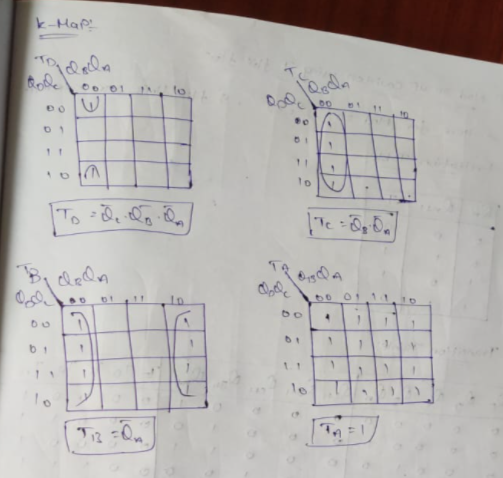 K-Map:
T_D Q_BQ_A
Q_DQ_C 00 01 11 10
00 1
01
11
10 1
T_D = Q̄_C·Q̄_B·Q̄_A
T_C Q_BQ_A
Q_DQ_C 00 01 11 10
00 1
01 1
11 1
10 1
T_C = Q̄_B·Q̄_A
T_B Q_BQ_A
Q_DQ_C 00 01 11 10
00 1 1
01 1 1
11 1 1
10 1 1
T_B = Q̄_A
T_A Q_BQ_A
Q_DQ_C 00 01 11 10
00 1 1 1 1
01 1 1 1 1
11 1 1 1 1
10 1 1 1 1
T_A = 1